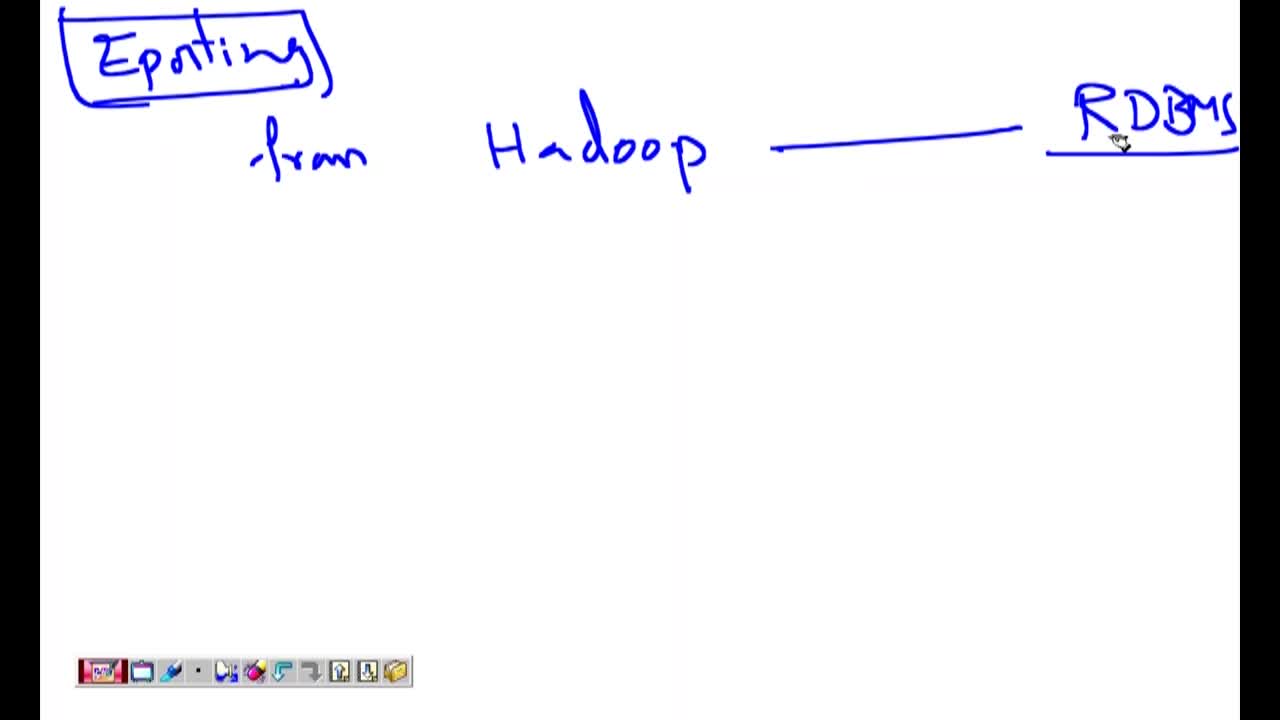 Eporting
from Hadoop RDBMS